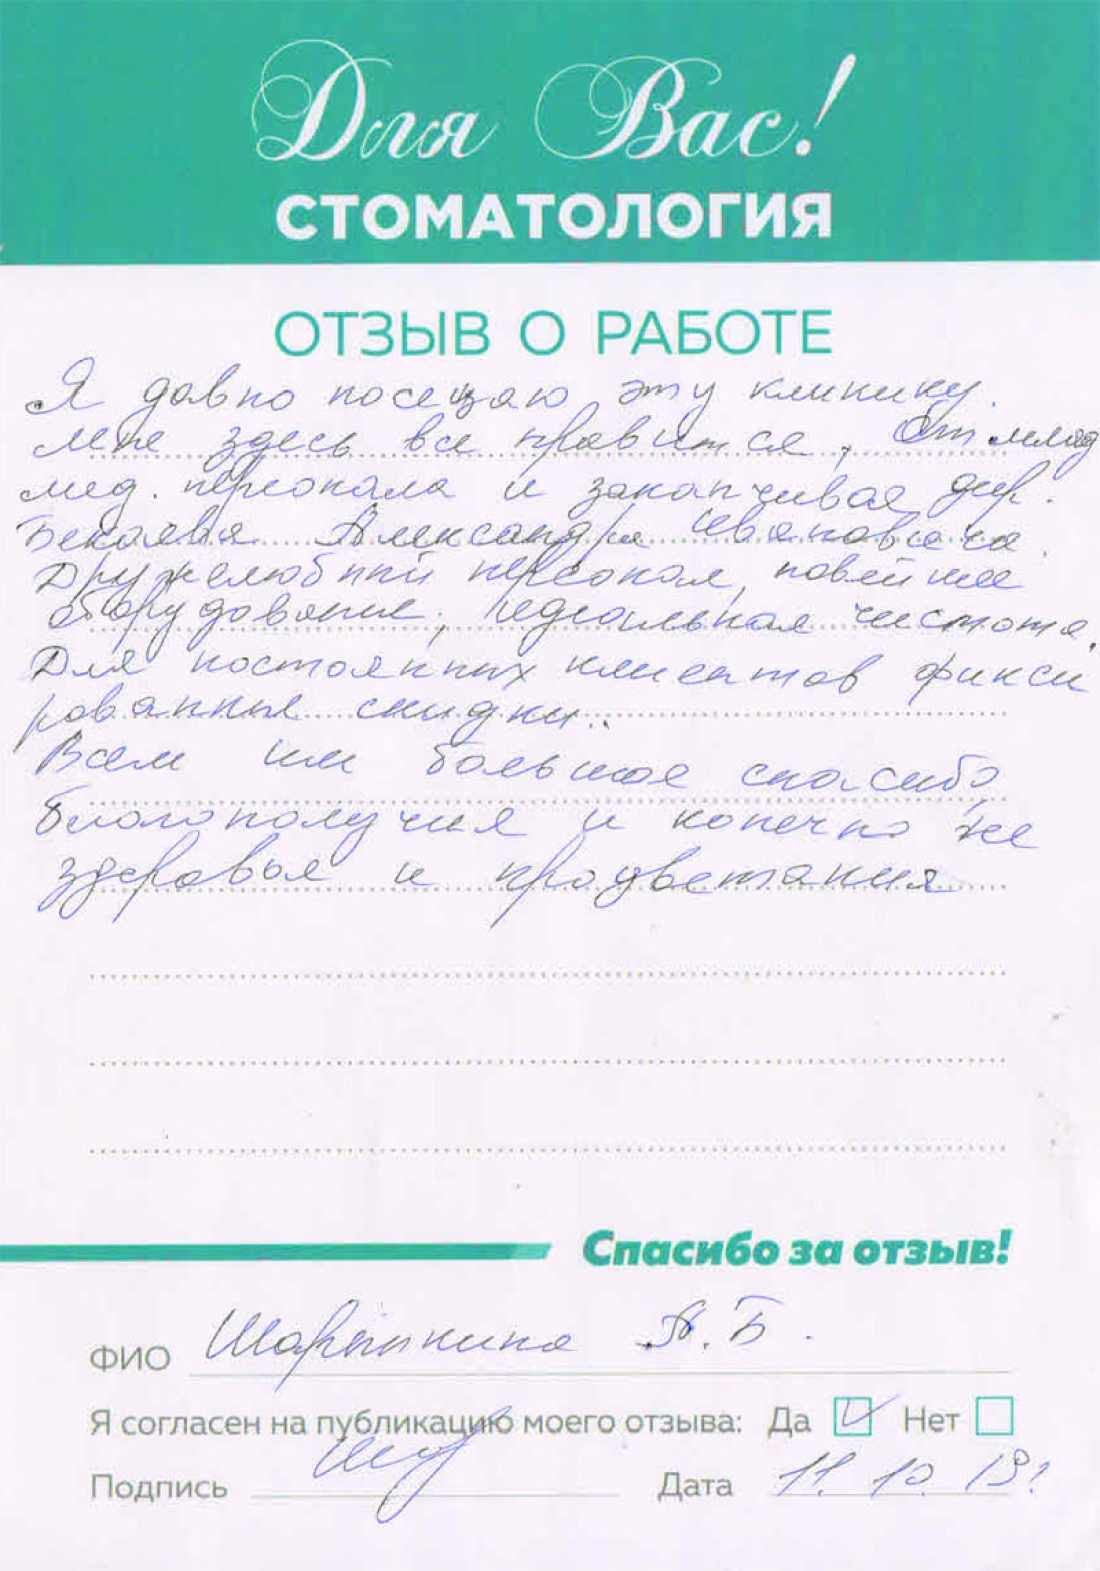 Для Вас!
СТОМАТОЛОГИЯ
ОТЗЫВ О РАБОТЕ
Я давно посещаю эту клинику.
мне здесь все нравится, От млад
мед. персонала и заканчивая дир.
Александра Ивановича.
Дружелюбный персонал, новейшее
оборудование, идеальная чистота.
Для постоянных клиентов фикси
рованные скидки..
Всем им большое спасибо,
благополучия и конечно же
здоровья и процветания
Спасибо за отзыв!
ФИО А.Б.
Я согласен на публикацию моего отзыва: Да Нет
Подпись Дата 11.10.19г